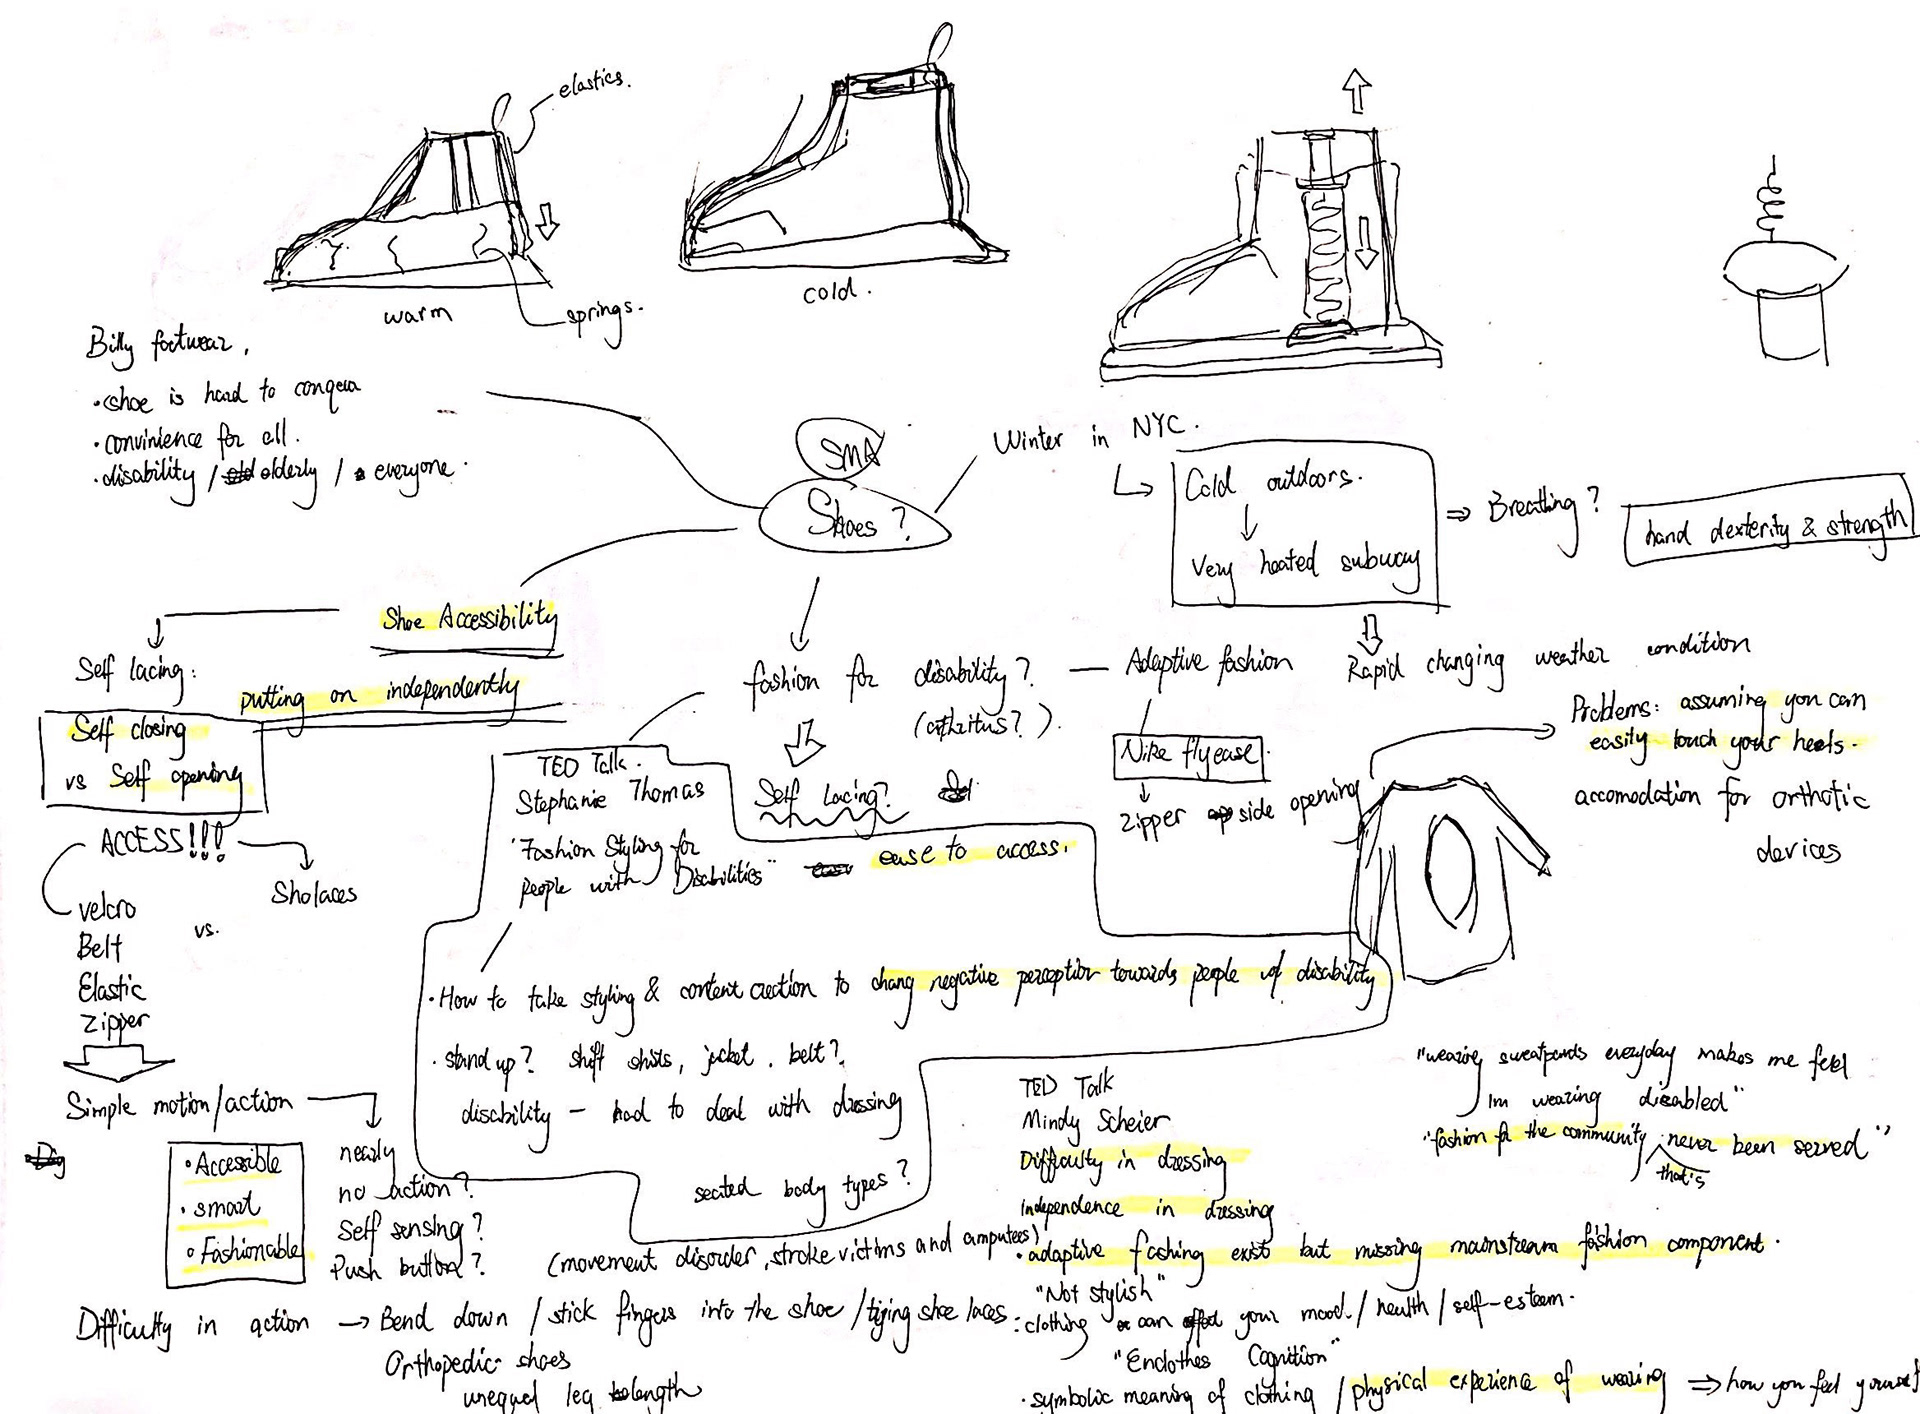 elastics.
warm
springs.
cold.
Billy footwear,
• shoe is hard to conquer
• convinience for all.
• disability / old elderly / everyone.
SMA
Shoes ?
Winter in NYC.
Cold outdoors.
Very heated subway
⇒ Breathing ?
hand dexterity & strength
Rapid changing weather condition
Shoe Accessibility
putting on independently
Self lacing:
Self closing
vs Self opening
ACCESS!!!
Sholaces
velcro
vs.
Belt
Elastic
Zipper
Simple motion/action
• Accessible
• smart
• Fashionable
nearly
no action?
Self sensing?
Push button?
fashion for disability? — Adaptive fashion
(arthritus?).
Self Lacing?
ease to access.
Nike flyease.
zipper side opening
Problems: assuming you can
easily touch your heels.
accomodation for orthotic
devices
TED Talk.
Stephanie Thomas
"Fashion Styling for
people with Disabilities"
• How to take styling & content creation to chang negative perception towards people of disability
• stand up? shift shits, jacket, belt?
disability — had to deal with dressing
seated body types?
(movement disorder, stroke victims and amputees)
TED Talk
Mindy Scheier
Difficulty in dressing
Independence in dressing
• adaptive fashing exist but missing mainstream fashion component.
"Not stylish"
: clothing can affect your mood / health / self-esteem.
"Enclothes Cognition"
• symbolic meaning of clothing / physical experience of wearing ⇒ how you feel yourself
"wearing sweatpands everyday makes me feel
Im wearing disabled"
"fashion for the community that's never been served"
Difficulty in action → Bend down / stick fingers into the shoe / tying shoe laces
Orthopedic shoes
unequel leg length